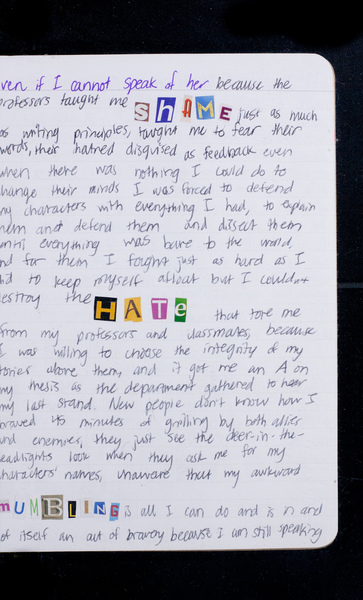 ven if I cannot speak of her because the
professors taught me SHAME just as much
as writing principles, taught me to fear their
words, their hatred disguised as feedback even
when there was nothing I could do to
change their minds I was forced to defend
my characters with everything I had, to explain
them and defend them and disect them
until everything was bare to the world,
nd for them I fought just as hard as I
did to keep myself afloat but I couldnt
estroy the HATe that tore me
from my professors and classmates, because
I was willing to choose the integrity of my
stories above them, and it got me an A on
my thesis as the department gathered to hear
my last stand. New people don't know how I
braved 45 minutes of grilling by both allies
and enemies, they just see the deer-in-the-
eadlights look when they ask me for my
characters' names, unaware that my awkward
mUMBLING is all I can do and is in and
of itself an act of bravery because I am still speaking